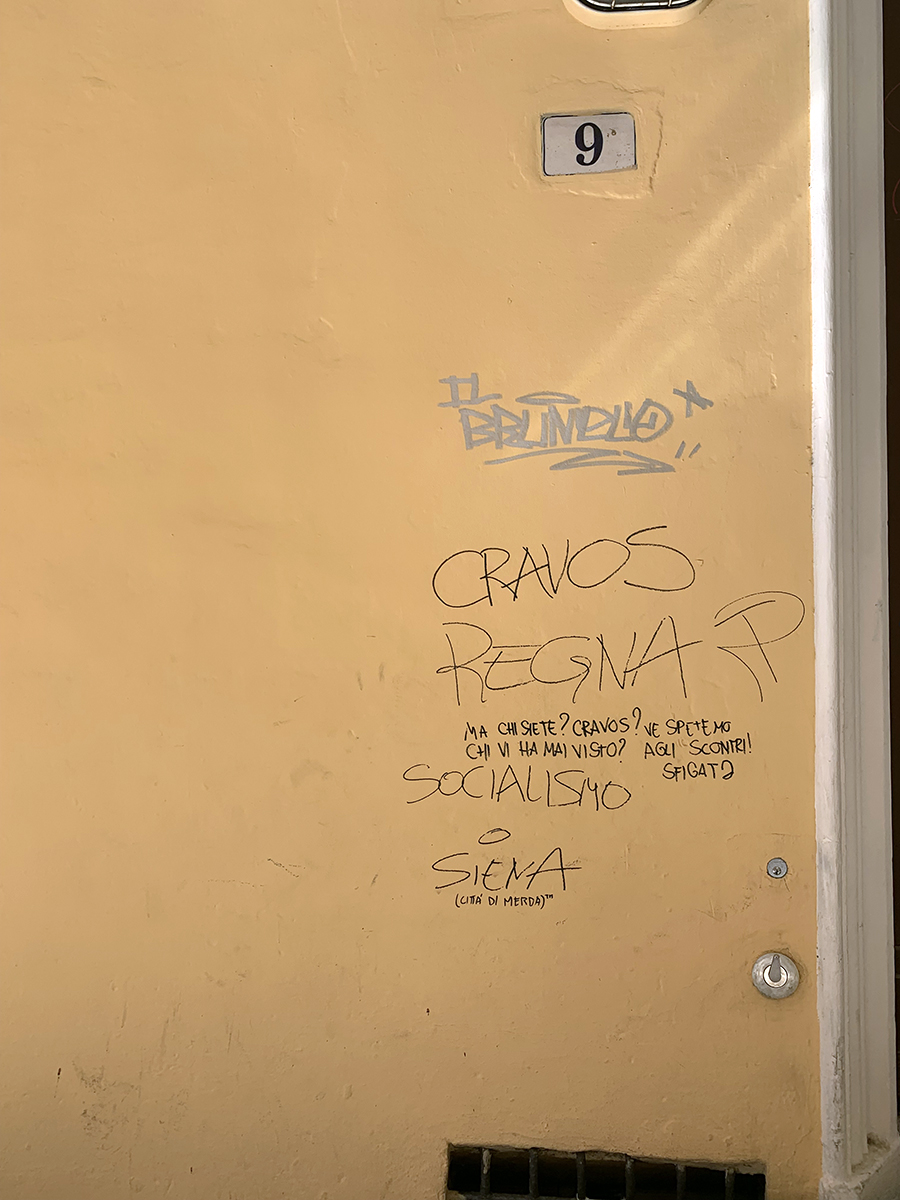 9
IL
BRUNDUO
CRAVOS
REGNA
MA CHI SIETE? CRAVOS?
CHI VI HA MAI VISTO?
VE SPETEMO
AGLI SCONTRI!
SFIGATƧ
SOCIALISMO
O
SIENA
(CITTÀ DI MERDA)™